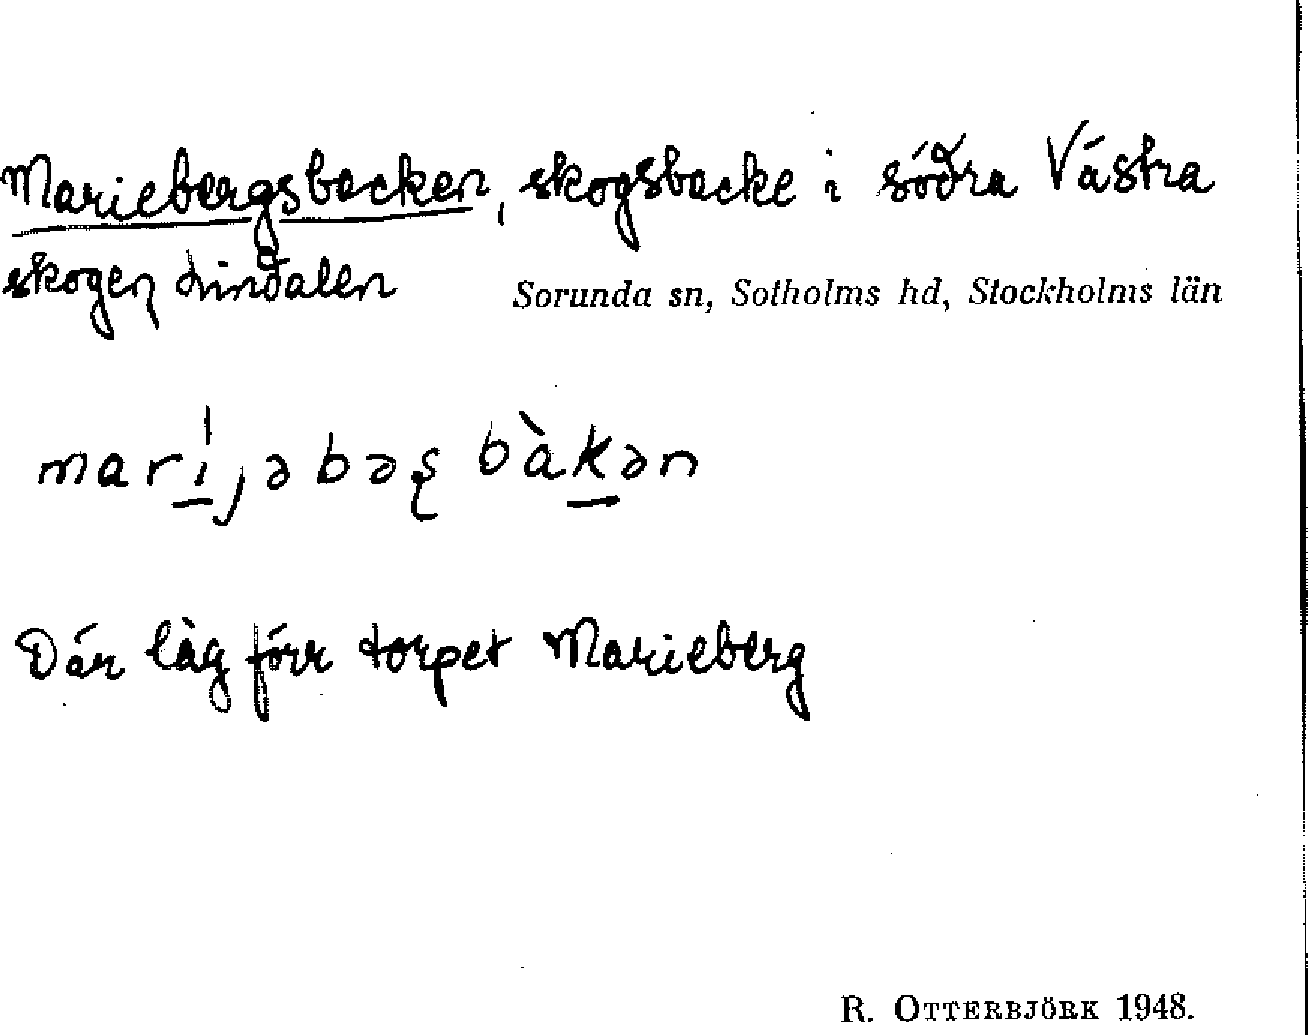 Mariebergsbacken, skogsbacke i södra Västra
skogen, Lindalen Sorunda sn, Sotholms hd, Stockholms län
marí̱jəbəʂ bàḵən
Där låg förr torpet Marieberg
R. OTTERBJÖRK 1948.